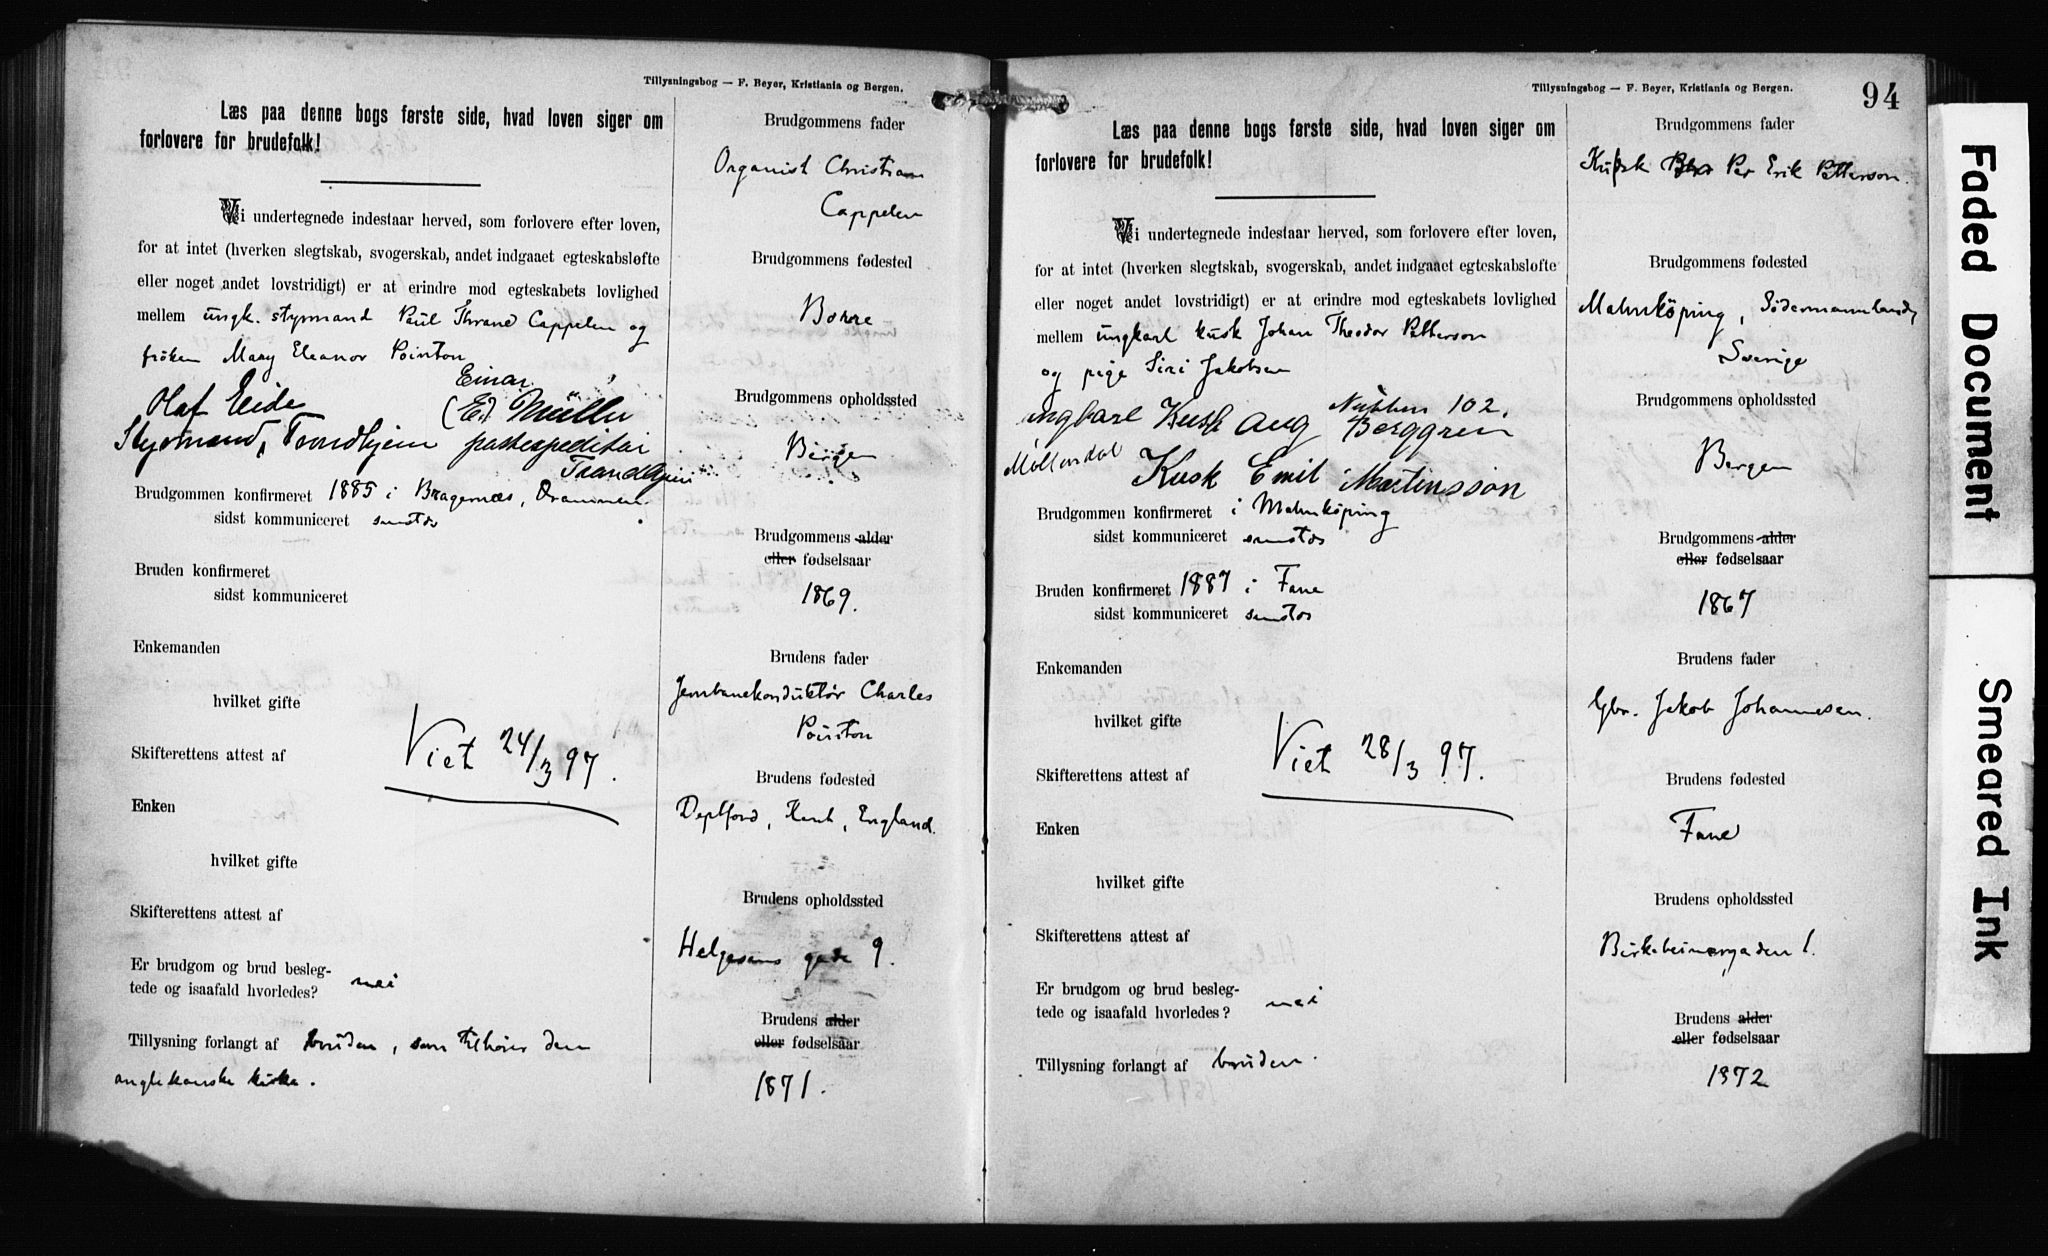 Tillysningsbog — F. Beyer, Kristiania og Bergen.
Læs paa denne bogs første side, hvad loven siger om
forlovere for brudefolk!
Vi undertegnede indestaar herved, som forlovere efter loven,
for at intet (hverken slegtskab, svogerskab, andet indgaaet egteskabsløfte
eller noget andet lovstridigt) er at erindre mod egteskabets lovlighed
mellem ungk. styrmand Paul Thrane Cappelen og
frøken Mary Eleanor Pointon
Einar
Olaf Eide (E.) Müller
Styrmand, Trondhjem postexpeditør
Trondhjem
Brudgommen konfirmeret 1885 i Bragernæs, Drammen
sidst kommuniceret samstds
Bruden konfirmeret
sidst kommuniceret
Enkemanden
hvilket gifte
Viet 24/3 97.
Skifterettens attest af
Enken
hvilket gifte
Skifterettens attest af
Er brudgom og brud besleg-
tede og isaafald hvorledes? nei
Tillysning forlangt af bruden, som tilhører den
anglikanske kirke.
Brudgommens fader
Organist Christian
Cappelen
Brudgommens fødested
Borre
Brudgommens opholdssted
Bergen
Brudgommens alder
eller fødselsaar
1869.
Brudens fader
Jernbanekonduktør Charles
Pointon
Brudens fødested
Deptford, Kent, England.
Brudens opholdssted
Helgesens gade 9.
Brudens alder
eller fødselsaar
1871.
Tillysningsbog — F. Beyer, Kristiania og Bergen.
94
Læs paa denne bogs første side, hvad loven siger om
forlovere for brudefolk!
Vi undertegnede indestaar herved, som forlovere efter loven,
for at intet (hverken slegtskab, svogerskab, andet indgaaet egteskabsløfte
eller noget andet lovstridigt) er at erindre mod egteskabets lovlighed
mellem ungkarl kusk Johan Theodor Petterson
og pige Siri Jakobsen
102.
ungkarl Kusk Aug Berggren
Møllendal
Kusk Emil Martinsson
Brudgommen konfirmeret i Malmköping
sidst kommuniceret samstds
Bruden konfirmeret 1887 i Fane
sidst kommuniceret samstds
Enkemanden
hvilket gifte
Viet 28/3 97.
Skifterettens attest af
Enken
hvilket gifte
Skifterettens attest af
Er brudgom og brud besleg-
tede og isaafald hvorledes? nei
Tillysning forlangt af bruden.
Brudgommens fader
Kusk Per Erik Petterson.
Brudgommens fødested
Malmköping, Södermannland,
Sverige
Brudgommens opholdssted
Bergen
Brudgommens alder
eller fødselsaar
1867
Brudens fader
Gbr. Jakob Johannesen.
Brudens fødested
Fane
Brudens opholdssted
Birkebeinergaden 1.
Brudens alder
eller fødselsaar
1872
Faded Document
Smeared Ink